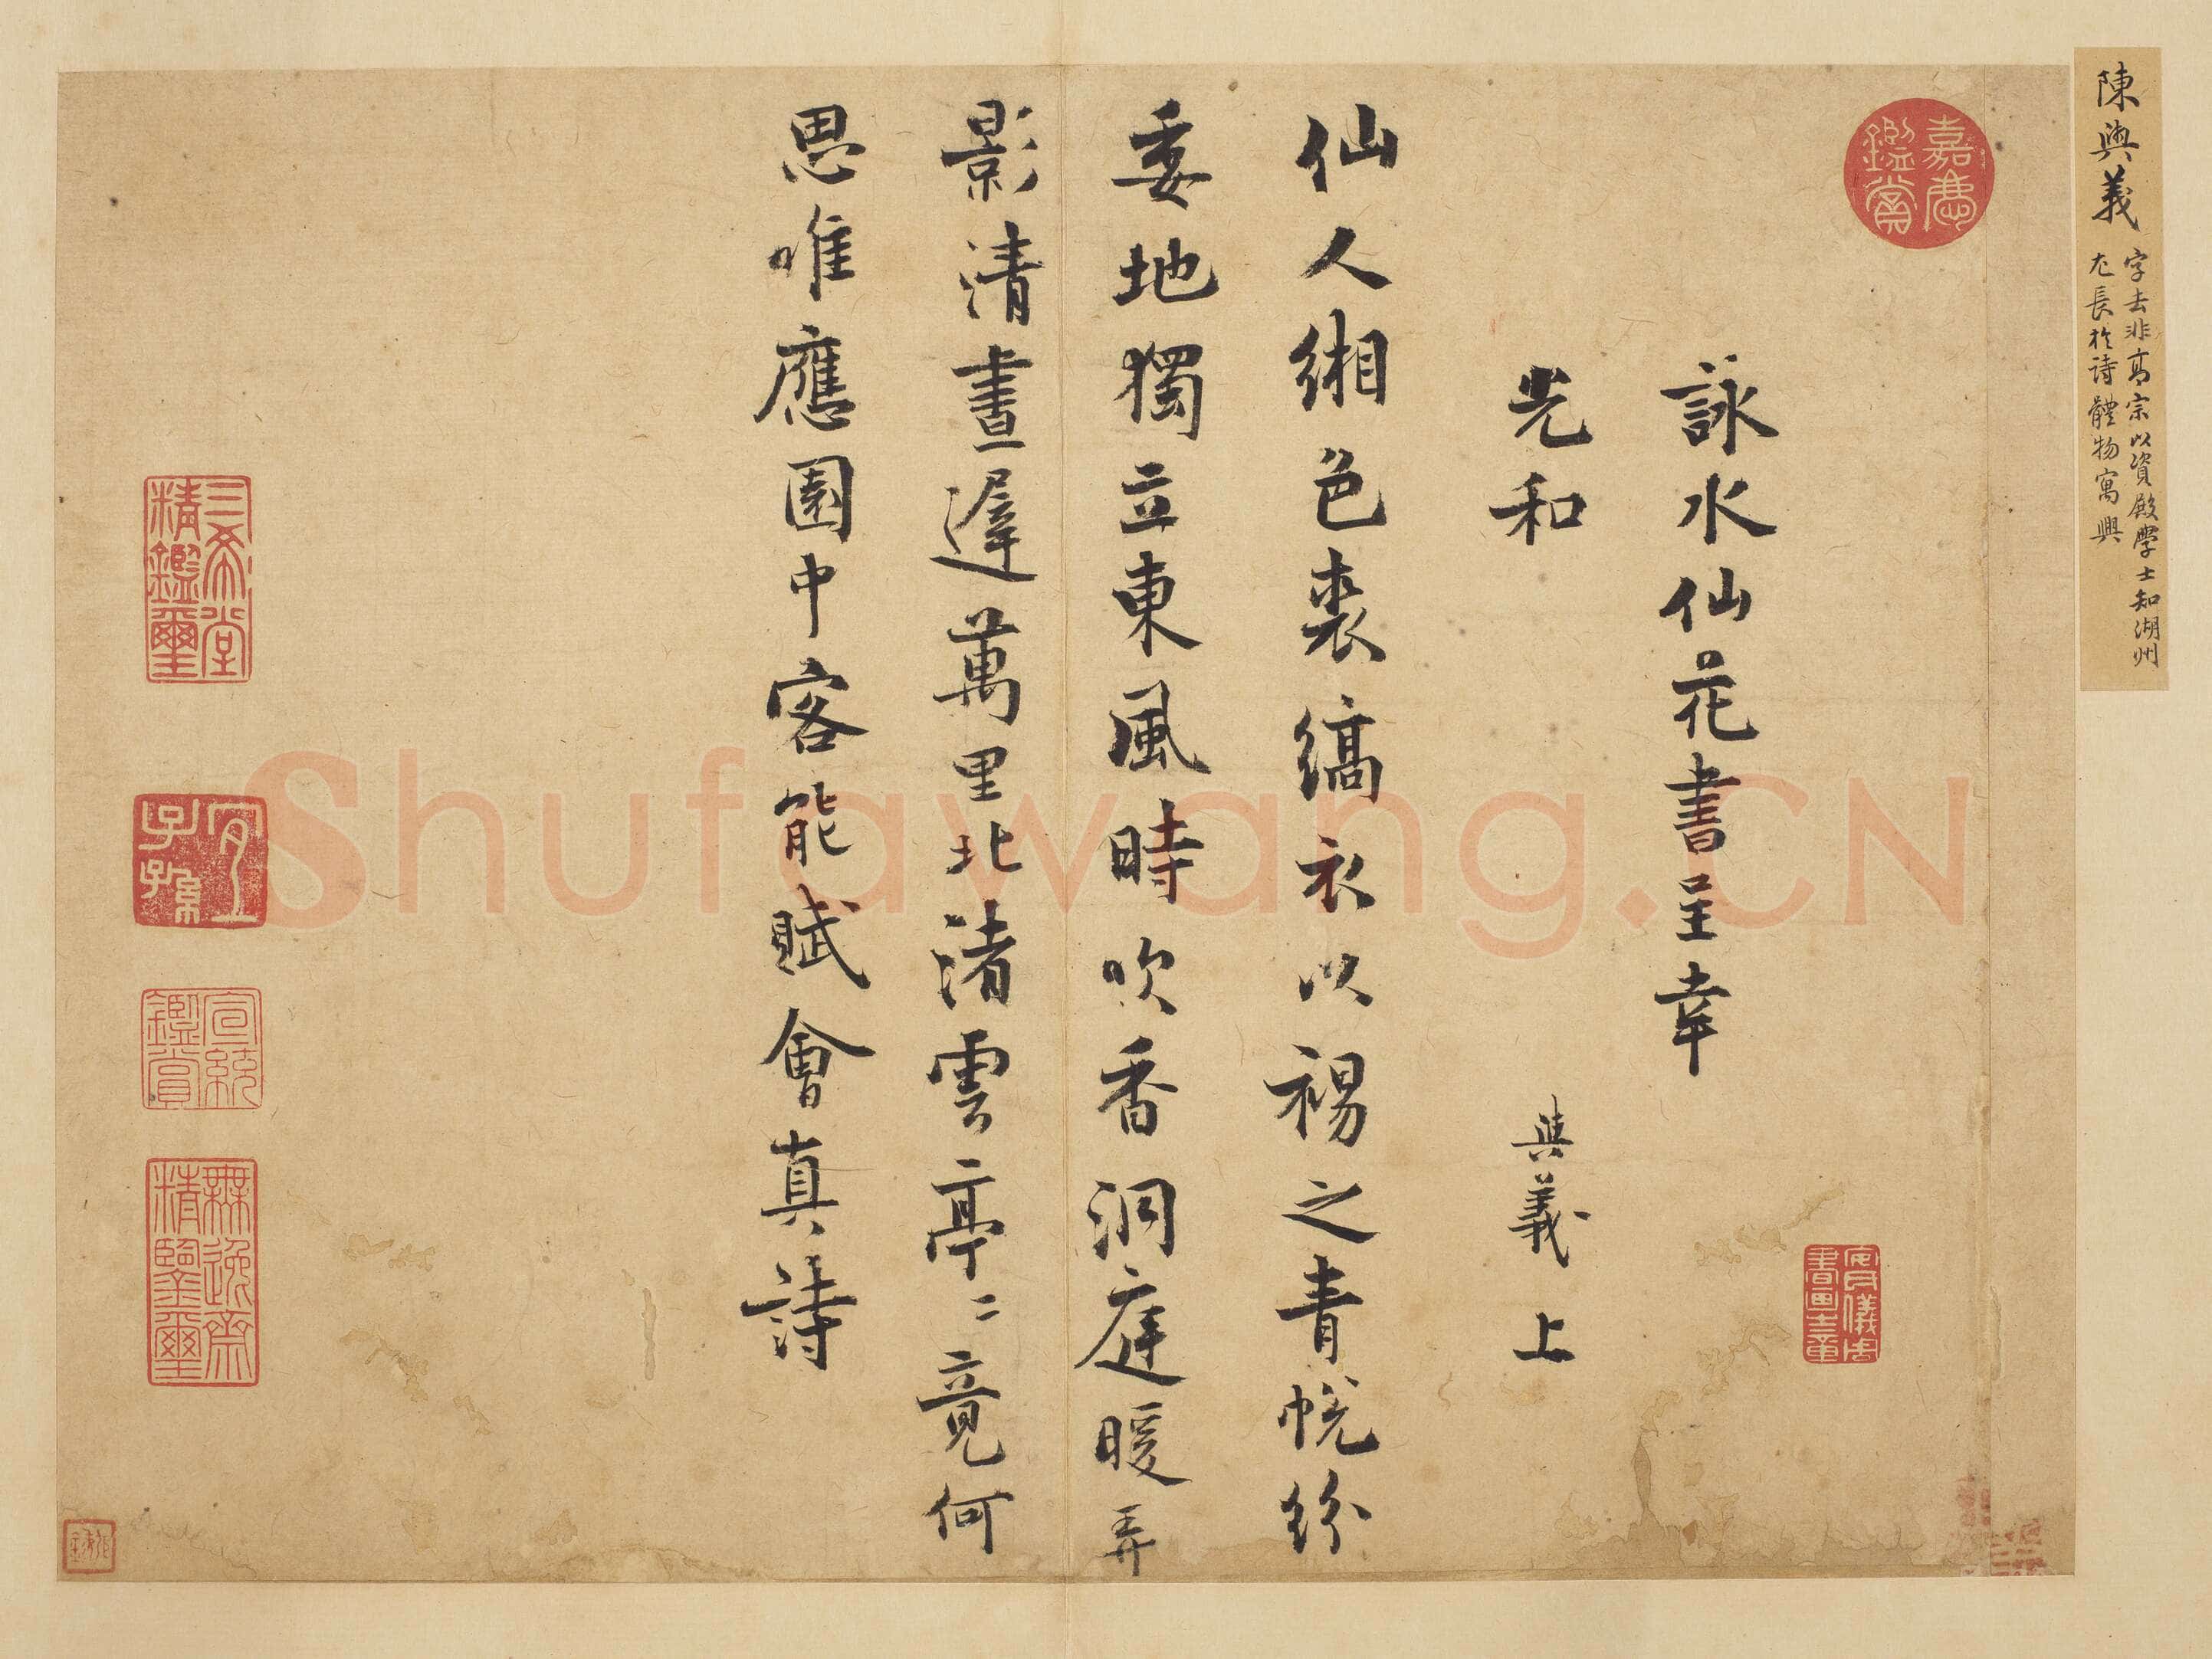 陳與義
字去非高宗以資殿學士知湖州
尤長於詩體物寓興
嘉慶鑑賞
詠水仙花書呈幸
光和 與義上
仙人緗色裘縞衣以裼之青帨紛
委地獨立東風時吹香洞庭暖弄
影清晝遲萬里北渚雲亭〻竟何
思唯應園中客能賦會真詩
安儀周書畫之章
三希堂精鑑璽
宜子孫
宣統鑑賞
無逸齋精鑒璽
Shufawang.CN